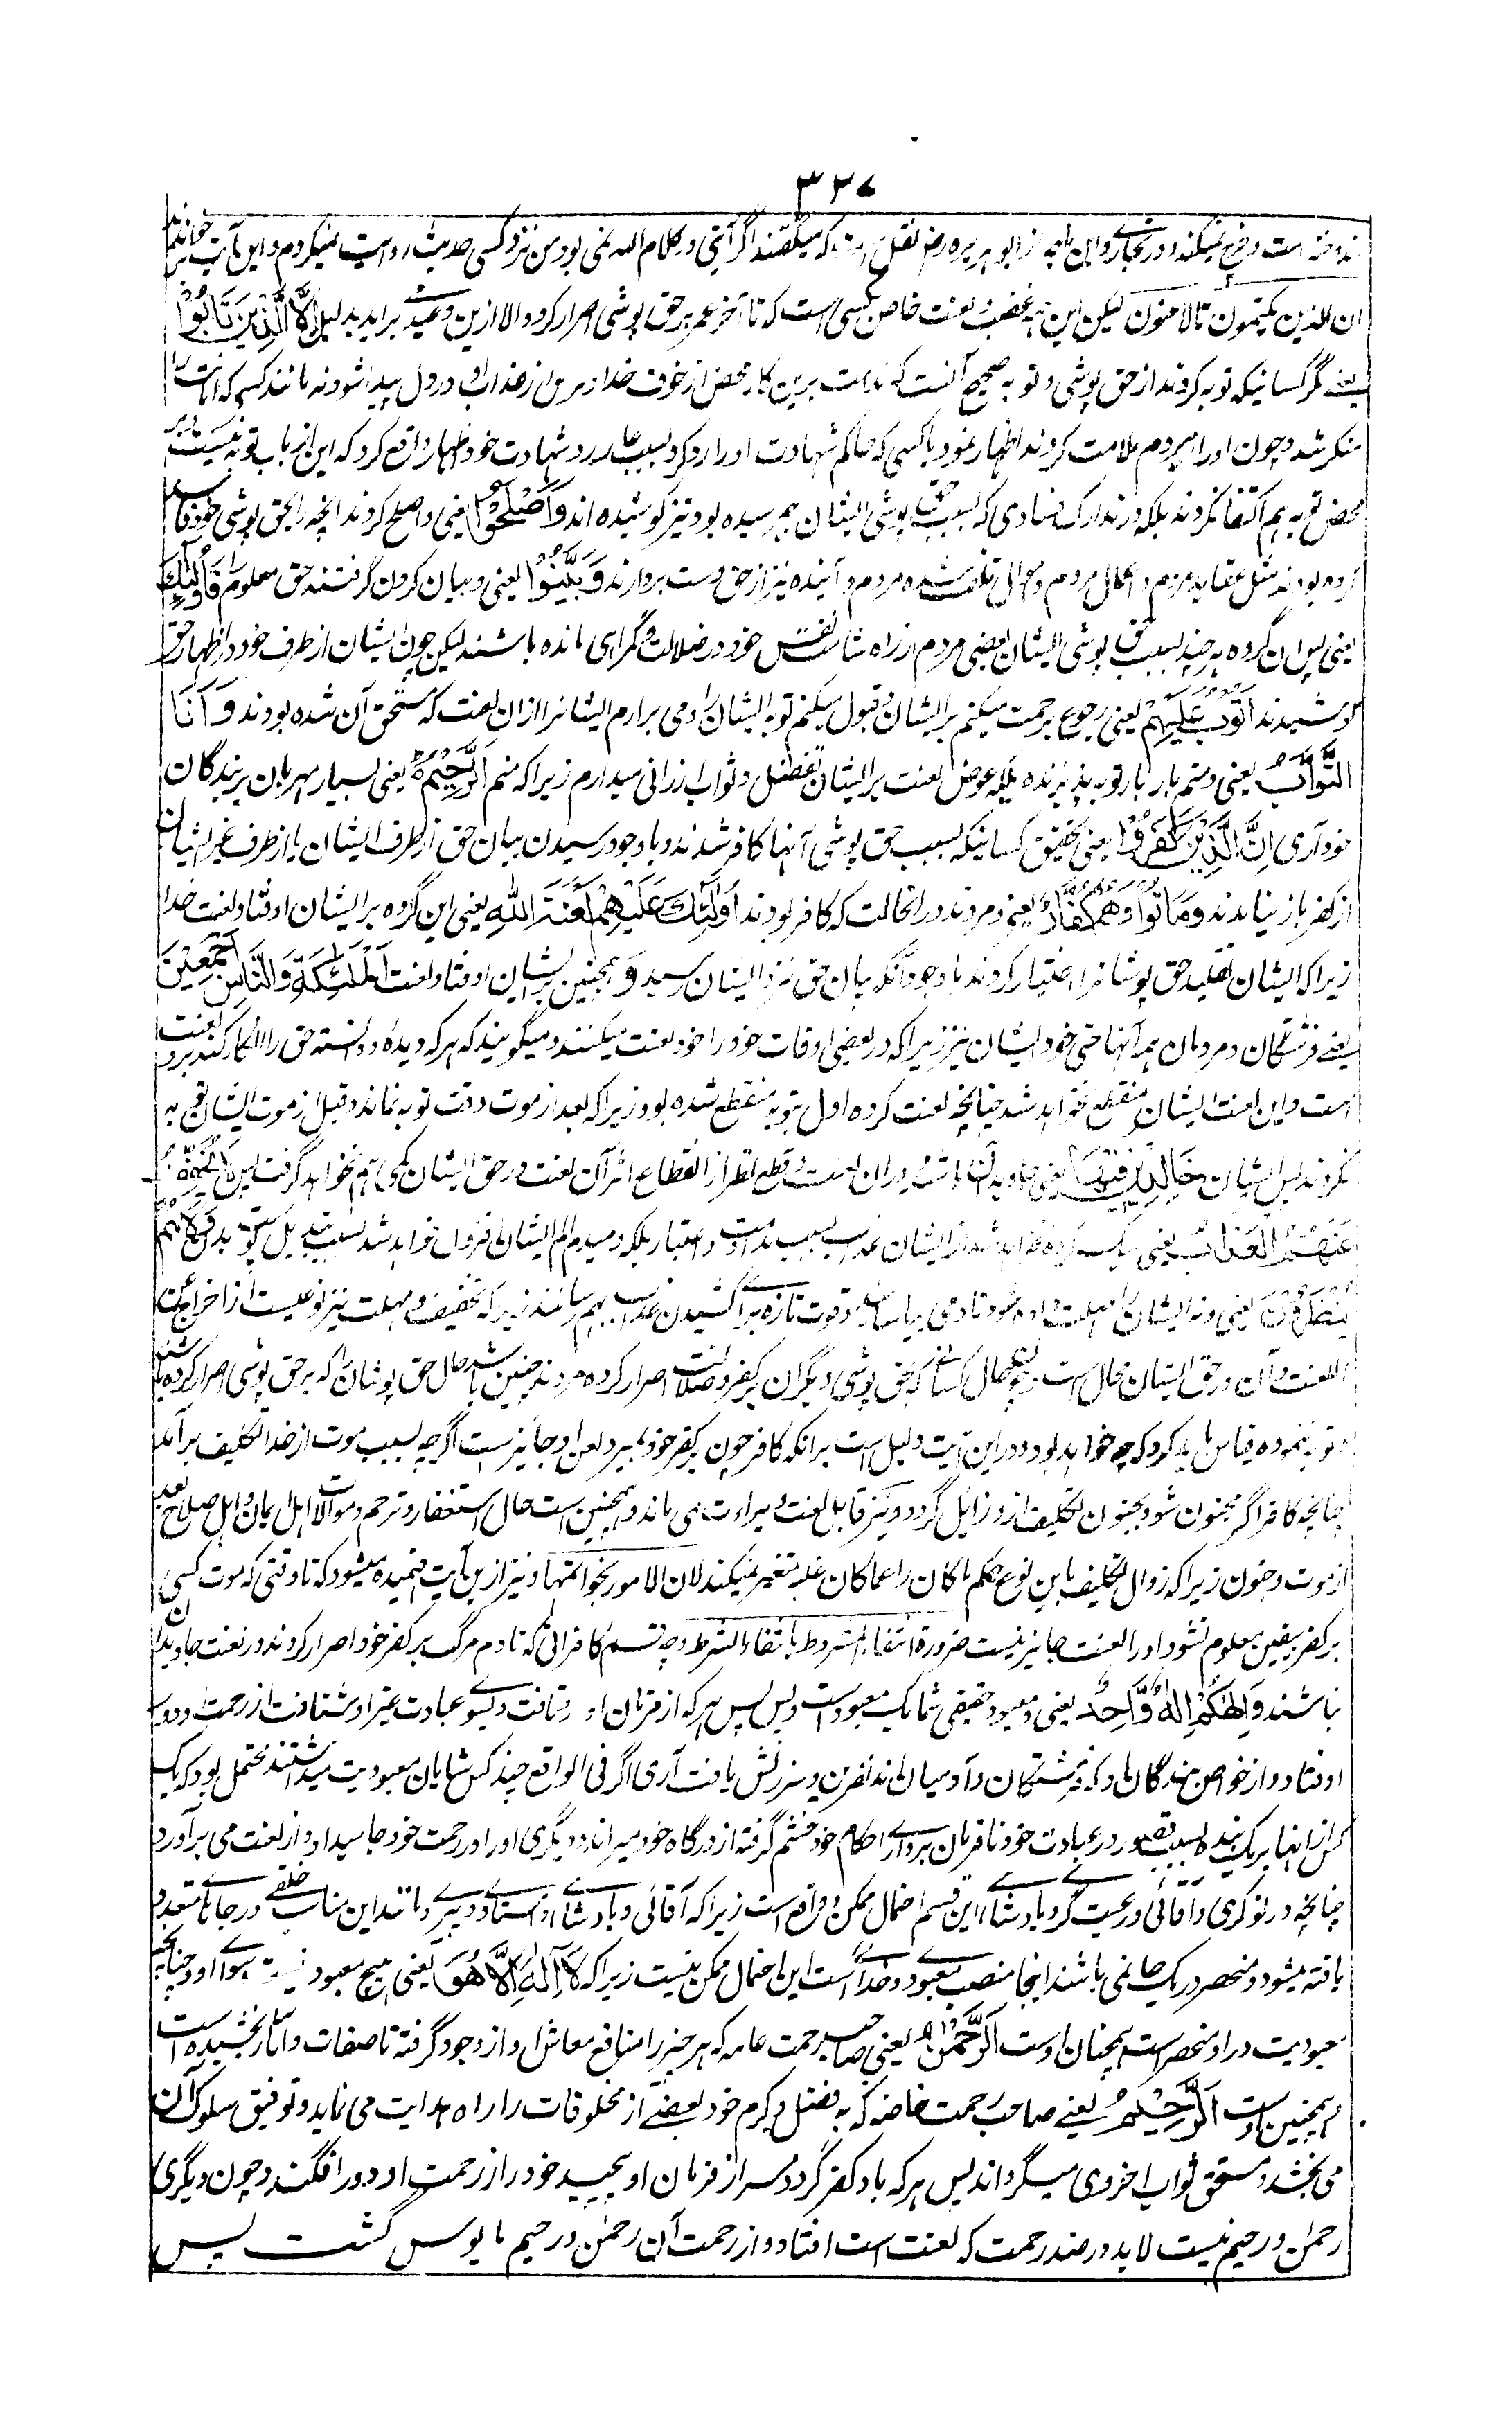 ۳۳۷
اندوخته است و خرج نمیکند و در بخاری و ابن ماجه از ابو هریره رض نقل است که میگفتند اگر آیتی در کلام الله نمی بود من نزد کسی حدیث روایت نمیکردم و این آیت خواندند
ان الذین یکتمون تا لاعنون لیکن این همه غضب و لعنت خاص بکسی است که تا آخر عمر بر حق پوشی اصرار کرد والا ازین وعید برآید بدلیل اِلَّا الَّذِیْنَ تَابُوْا
یعنے مگر کسانیکه توبه کردند از حق پوشی و توبه صحیح آنست که ندامت برین کار محض از خوف خدا و ترس از عذاب او در دل پیدا شود نه مانند کسیکه امانت را
منکر شد و چون او را مردم ملامت کردند اظهار نمود یا کسی که حاکم شهادت او را رد کرد بسبب عار رد شهادت خود اظهار واقع کرد که این از باب توبه نیست و نیز
محض توبه هم اکتفا نکردند بلکه در تدارک فسادی که بسبب حق پوشی ایشان بهم رسیده بود نیز کوشیده اند وَاَصْلَحُوْا یعنی و اصلاح کردند انچه را بحق پوشی خود فاسد
کرده بودند مثل عقاید مردم و اعمال مردم و اموال تلف شده مردم و آینده نیز از حق دست بردارند وَبَیَّنُوْا یعنی و بیان کردن گرفتند حق معلوم را فَاُولٰٓئِكَ
یعنی پس این گروه هر چند بسبب حق پوشی ایشان بعضی مردم از راه شامت نفس خود در ضلالت و گمراهی مانده باشند لیکن چون ایشان از طرف خود در اظهار حق
کوشیدند اَتُوْبُ عَلَیْهِمْ یعنی رجوع برحمت میکنم بر ایشان و قبول میکنم توبه ایشان را و می برارم ایشانرا ازان لعنت که مستحق آن شده بودند وَاَنَا
التَّوَّابُ یعنی و منم بار بار توبه پذیرنده بلکه عوض لعنت بر ایشان تفضل و ثواب ارزانی میدارم زیرا که منم الرَّحِیْمُ یعنی بسیار مهربان بر بندگان
خود آری اِنَّ الَّذِیْنَ كَفَرُوْا یعنی تحقیق کسانیکه بسبب حق پوشی آنها کافر شدند و با وجود رسیدن بیان حق از طرف ایشان یا از طرف غیر ایشان
از کفر باز نیامدند وَمَاتُوْا وَهُمْ كُفَّارٌ یعنی و مردند در انحالت که کافر بودند اُولٰٓئِكَ عَلَیْهِمْ لَعْنَةُ اللهِ یعنی این گروه بر ایشان اوفتاد لعنت خدا
زیرا که ایشان تقلید حق پوشانرا اختیار کردند با وجود آنکه بیان حق نزد ایشان رسید و همچنین بر ایشان اوفتاد لعنت الْمَلٰٓئِكَةِ وَالنَّاسِ اَجْمَعِیْنَ
یعنے فرشتگان و مردمان همه آنها حتی خود ایشان نیز زیرا که در بعضی اوقات خود را خود لعنت میکنند و میگویند که هر که دیده و دانسته حق را انکار کند بر و لعنت
است و این لعنت ایشان منقطع نخواهد شد چنانچه لعنت کرده اول بتوبه منقطع شده بود زیرا که بعد از موت وقت توبه نماند و قبل از موت ایشان توبه
نکردند پس ایشان خَالِدِیْنَ فِیْهَا یعنی جاوید اند در ان لعنت و قطع نظر از انقطاع اثر آن لعنت در حق ایشان کمی هم نخواهد گرفت لَا یُخَفَّفُ
عَنْهُمُ الْعَذَابُ یعنی سبک کرده نخواهد شد از ایشان عذاب بسبب مداومت و اعتیاد بلکه دمبدم الم ایشان افزون خواهد شد بسبب تبدیل پوست بدن وَلَا هُمْ
یُنْظَرُوْنَ یعنی و نه ایشان را مهلت داده شود تا دمی بیاسایند و قوت تازه برای کشیدن عذاب بهم رسانند زیرا که تخفیف و مهلت نیز نوعیست از اخراج
از لعنت و آن در حق ایشان محال است و چون حال کسانے که بحق پوشی دیگران بر کفر و ضلالت اصرار کرده مردند چنین باشد حال حق پوشان که بر حق پوشی اصرار کرده
و توبه ننموده قیاس باید کرد که چه خواهد بود و در این آیت دلیل است برانکه کافر چون بر کفر خود بمیرد لعن او جایز است اگرچه بسبب موت از حد تکلیف برآمد
چنانچه کافر اگر مجنون شود بجنون تکلیف ازو زایل گردد و نیز قابل لعنت و براءت می ماند و همچنین است حال استغفار و ترحم و موالات اهل ایمان و اهل صلاح بعد
از موت و جنون زیرا که زوال تکلیف باین نوع حکم ما کان را عما کان علیه متغیر نمیکند لان الامور بخواتمها و نیز ازین آیت فهمیده میشود که تا وقتی که موت کسی
بر کفر بیقین معلوم نشود او را لعنت جایز نیست ضرورة انتفاء المشروط بانتفاء الشرط و چه قسم کافرانی که تا دم مرگ بر کفر خود اصرار کردند در لعنت جاویدان
نباشند وَاِلٰهُكُمْ اِلٰهٌ وَّاحِدٌ یعنی و معبود حقیقی شما یک معبود است و بس پس هر که از فرمان او رو تافت و بسوے عبادت غیر او شتافت از رحمت او دور
اوفتاد و از خواص بندگان او که فرشتگان و آدمیان اند نفرین و سرزنش یافت آری اگر فی الواقع چند کس شایان معبودیت میداشتند محتمل بود که یک
کس از اینها بر یک بنده بسبب قصور در عبادت خود نافرمان برداری احکام خود خشم گرفته از درگاه خود میراند و دیگری او را در رحمت خود جا میداد و از لعنت می برآورد
چنانچه در نوکری و آقائی و رعیت گری و بادشاهی این قسم احتمال ممکن و واقع است زیرا که آقائی و بادشاهی و استادے و پیرے و مانند این مناصب خلقے در جاهای متعدد
یافته میشود و منحصر در یک جا نمی باشند اینجا منصب معبودے و خدائی است این احتمال ممکن نیست زیرا که لَآ اِلٰهَ اِلَّا هُوَ یعنی هیچ معبود نیست سوای او و چنانچه
معبودیت در او منحصر است همچنان اوست الرَّحْمٰنُ یعنی صاحب رحمت عامه که هر چیز را منافع معاش او از وجود گرفته تا صفات و آثار بخشیده است
و همچنین اوست الرَّحِیْمُ یعنے صاحب رحمت خاصه که به فضل و کرم خود بعضے از مخلوقات را راه هدایت می نماید و توفیق سلوک آن
می بخشد و مستحق ثواب اخروی میگرداند پس هر که باو کفر گردد و سر از فرمان او بپیچید خود را از رحمت او دور افگند و چون دیگری
رحمٰن و رحیم نیست لابد در ضد رحمت که لعنت است افتاد و از رحمت آن رحمٰن و رحیم مایوس گشت پس